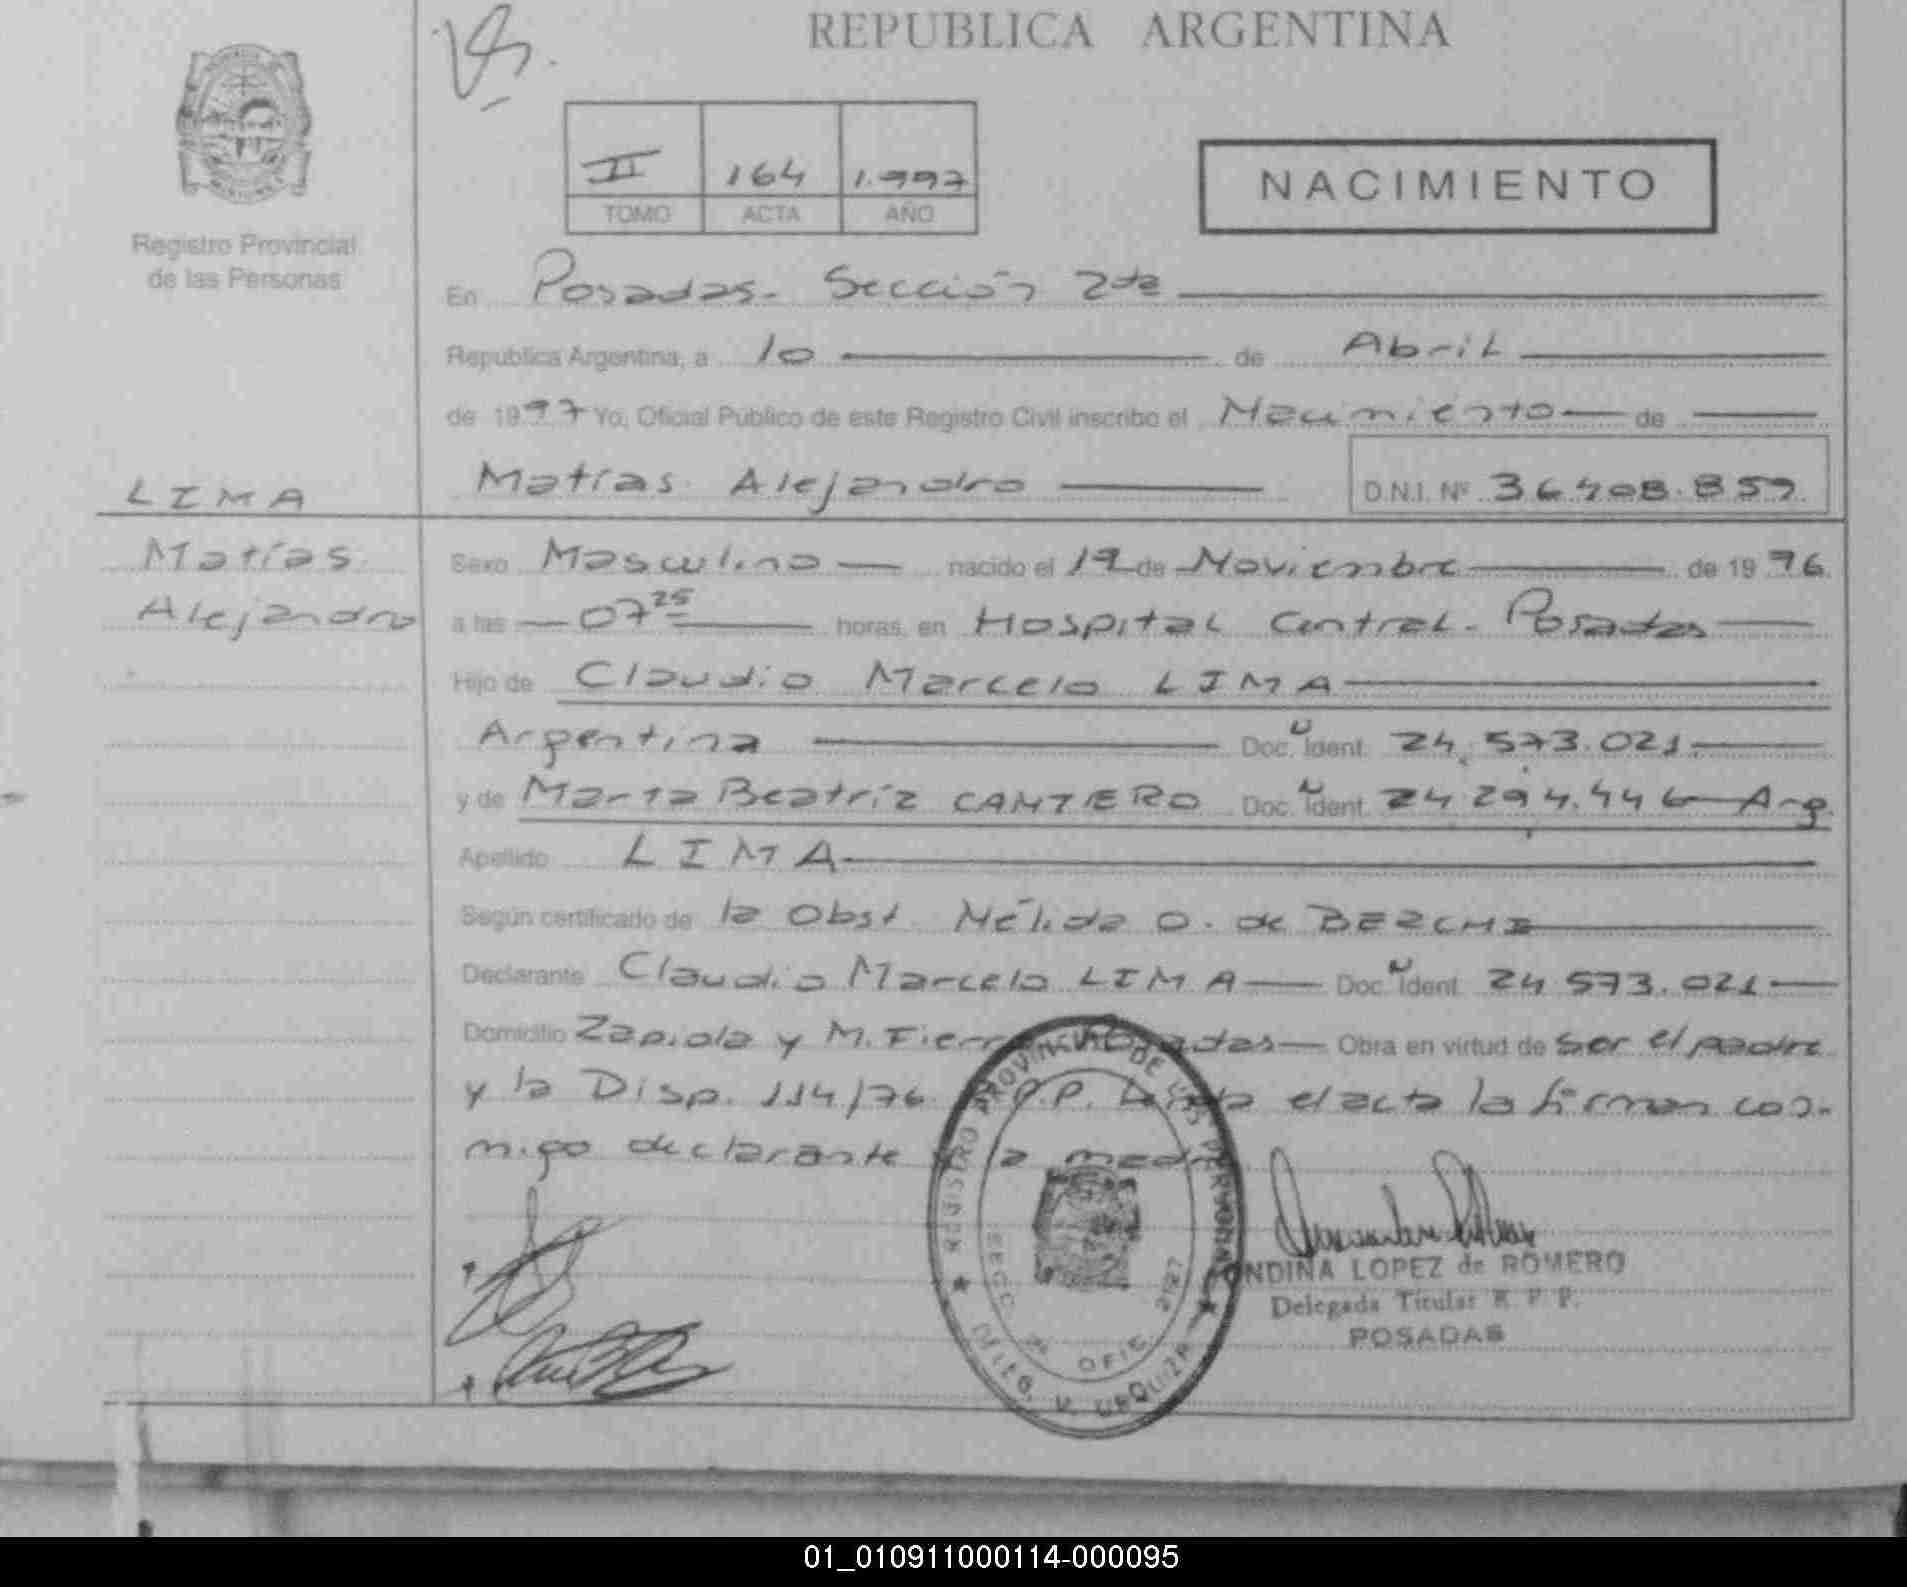 REPUBLICA ARGENTINA
II 164 1.997
TOMO ACTA AÑO
NACIMIENTO
Registro Provincial
de las Personas
En Posadas. Sección 2da
Republica Argentina, a 10 de Abril
de 1997 Yo, Oficial Público de este Registro Civil inscribo el Nacimiento de
LIMA
Matías Alejandro D.N.I. Nº 36.408.859
Matías
Alejandro
Sexo Masculino nacido el 19 de Noviembre de 1996
a las 07 25 horas, en Hospital Central. Posadas
Hijo de Claudio Marcelo LIMA
Argentina Doc. Ident. 24.573.021
y de Beatríz CANTERO Doc. Ident. 24.294.446 Arg.
Apellido LIMA
Según certificado de la Obst. Nélida O. de
Declarante Claudio Marcelo LIMA Doc. Ident. 24.573.021
Domicilio Zapiola y M. Posadas Obra en virtud de ser el padre
y la Disp. 114/76 el acta la firman con-
migo declarante la
REGISTRO PROVINCIAL DE LAS PERSONAS
SECC. 2a OFIC.
ONDINA LOPEZ de ROMERO
Delegada Titular R. P. P.
POSADAS
01_010911000114-000095